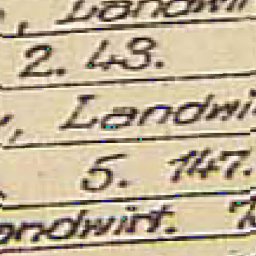 , Landwi
2. 43.
, Landwi
5. 147.
andwirt.